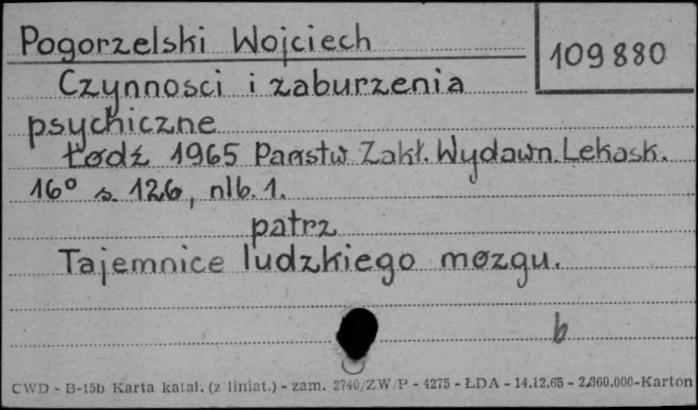 Pogorzelski Wojciech
109880
Czynnosci i zaburzenia
psychiczne
Łódź 1965 Państw. Zakł. Wydawn. Lekask.
16° s. 126, nlb. 1.
patrz
Tajemnice ludzkiego mozgu.
b
CWD - B-15b Karta katal. (z liniat.) - zam. 2740/ZW/P - 4275 - ŁDA - 14.12.65 - 2.360.000-Karton